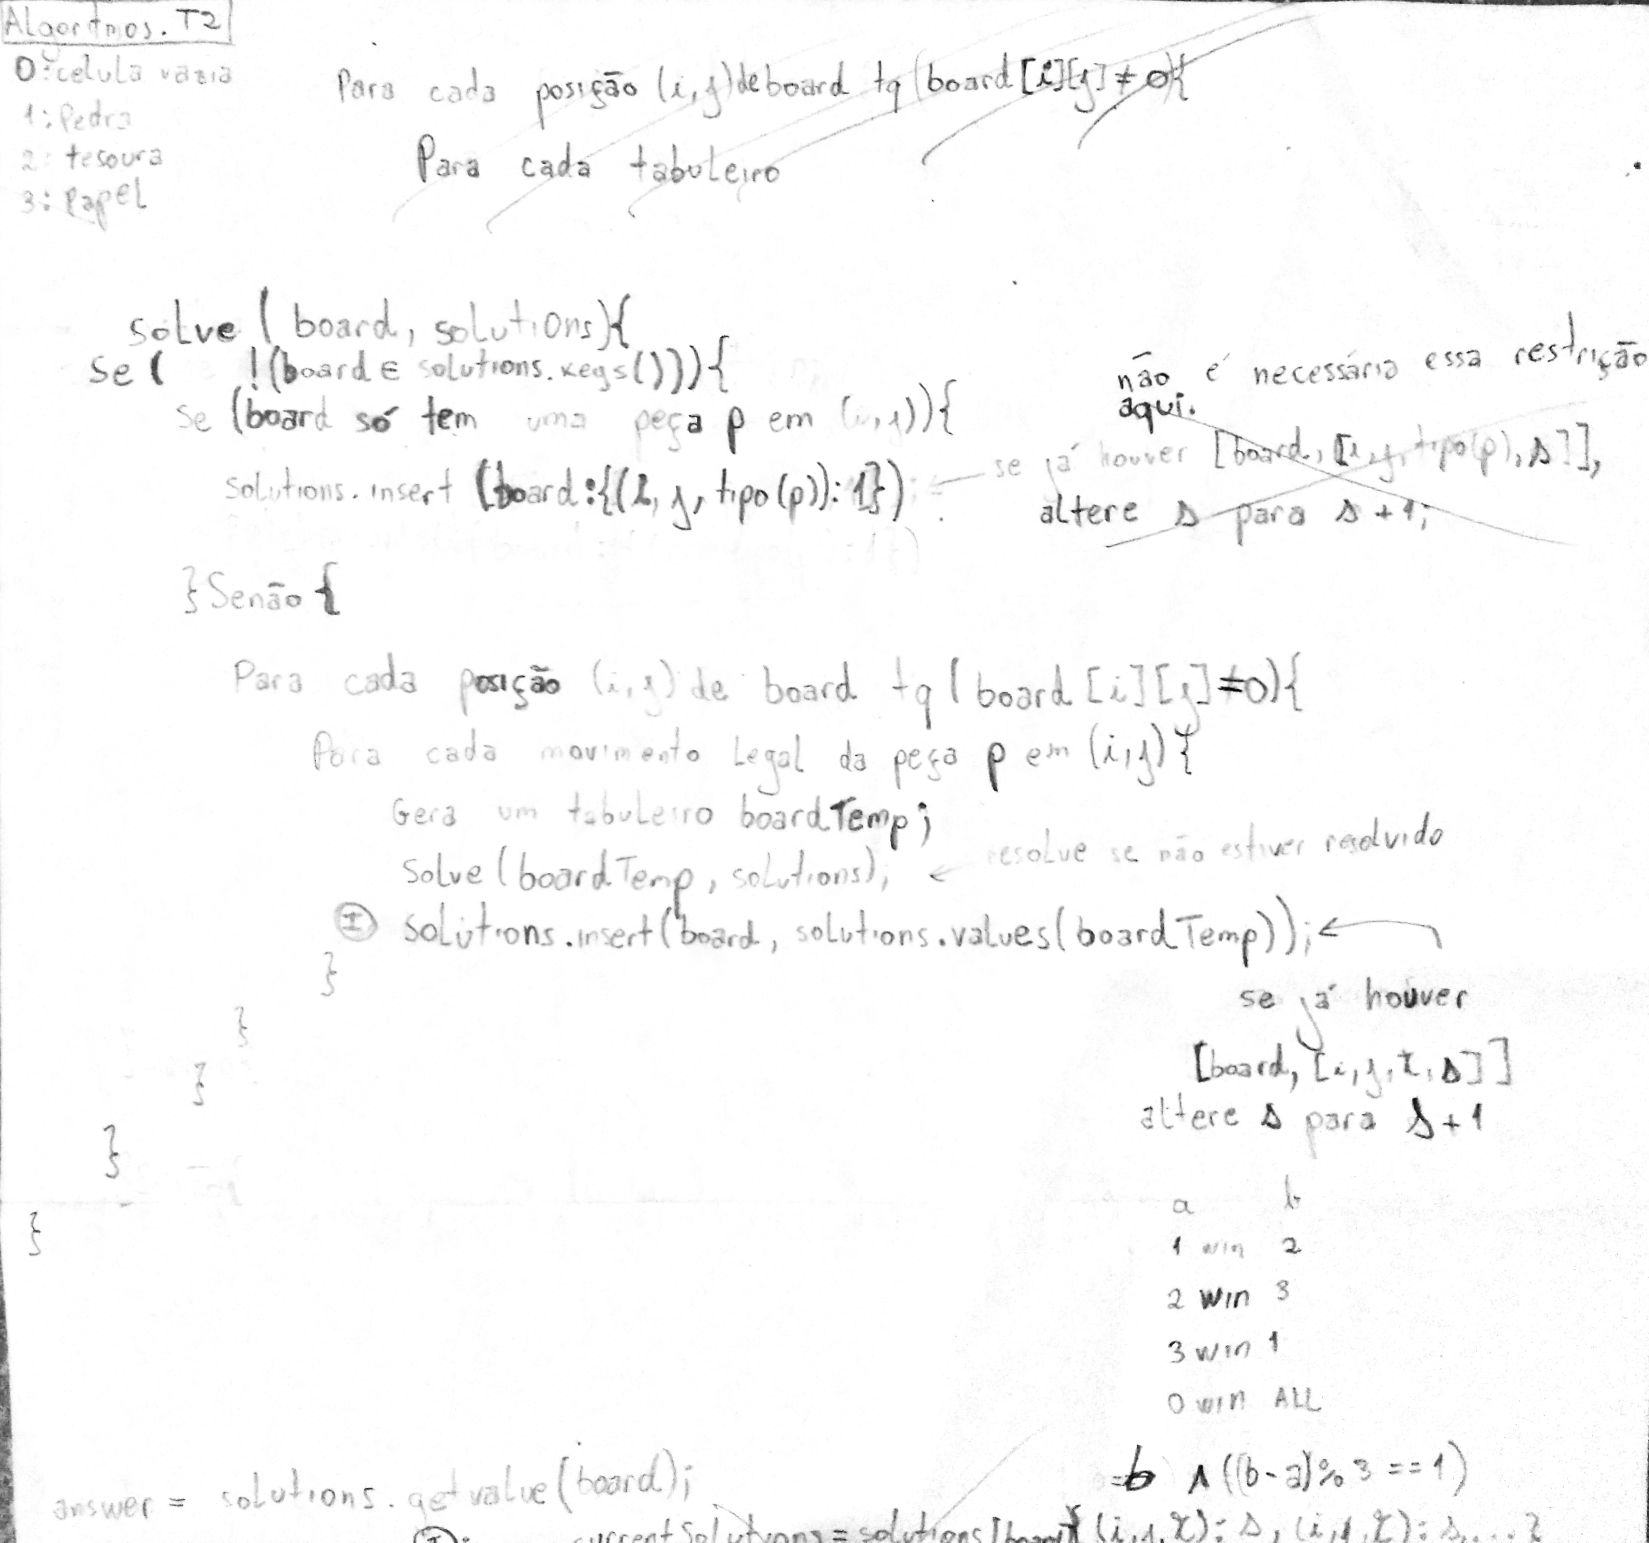 Algoritmos. T2
0: celula vazia
1: Pedra
2: tesoura
3: Papel
Para cada posição (i,j) de board tq (board[i][j] ≠ 0){
Para cada tabuleiro
solve ( board, solutions){
se ( !(board ∈ solutions.keys())){
se (board só tem uma peça p em (i,j)){
solutions.insert (board:{(i, j, tipo(p)): 1});
não é necessária essa restrição
aqui.
se já houver [board, [i, j, tipo(p), s]],
altere s para s + 1;
} Senão {
Para cada posição (i,j) de board tq ( board [i][j] ≠ 0){
Para cada movimento Legal da peça p em (i,j) {
Gera um tabuleiro boardTemp;
solve (boardTemp, solutions); ← resolve se não estiver resolvido
I solutions.insert(board, solutions.values(boardTemp)); ←
}
}
}
}
}
se já houver
[board, [i, j, t, s]]
altere s para s + 1
a b
1 win 2
2 win 3
3 win 1
0 win ALL
answer = solutions.getvalue(board);
=b ∧ ((b-a)%3 == 1)
I: currentSolutions = solutions[board]